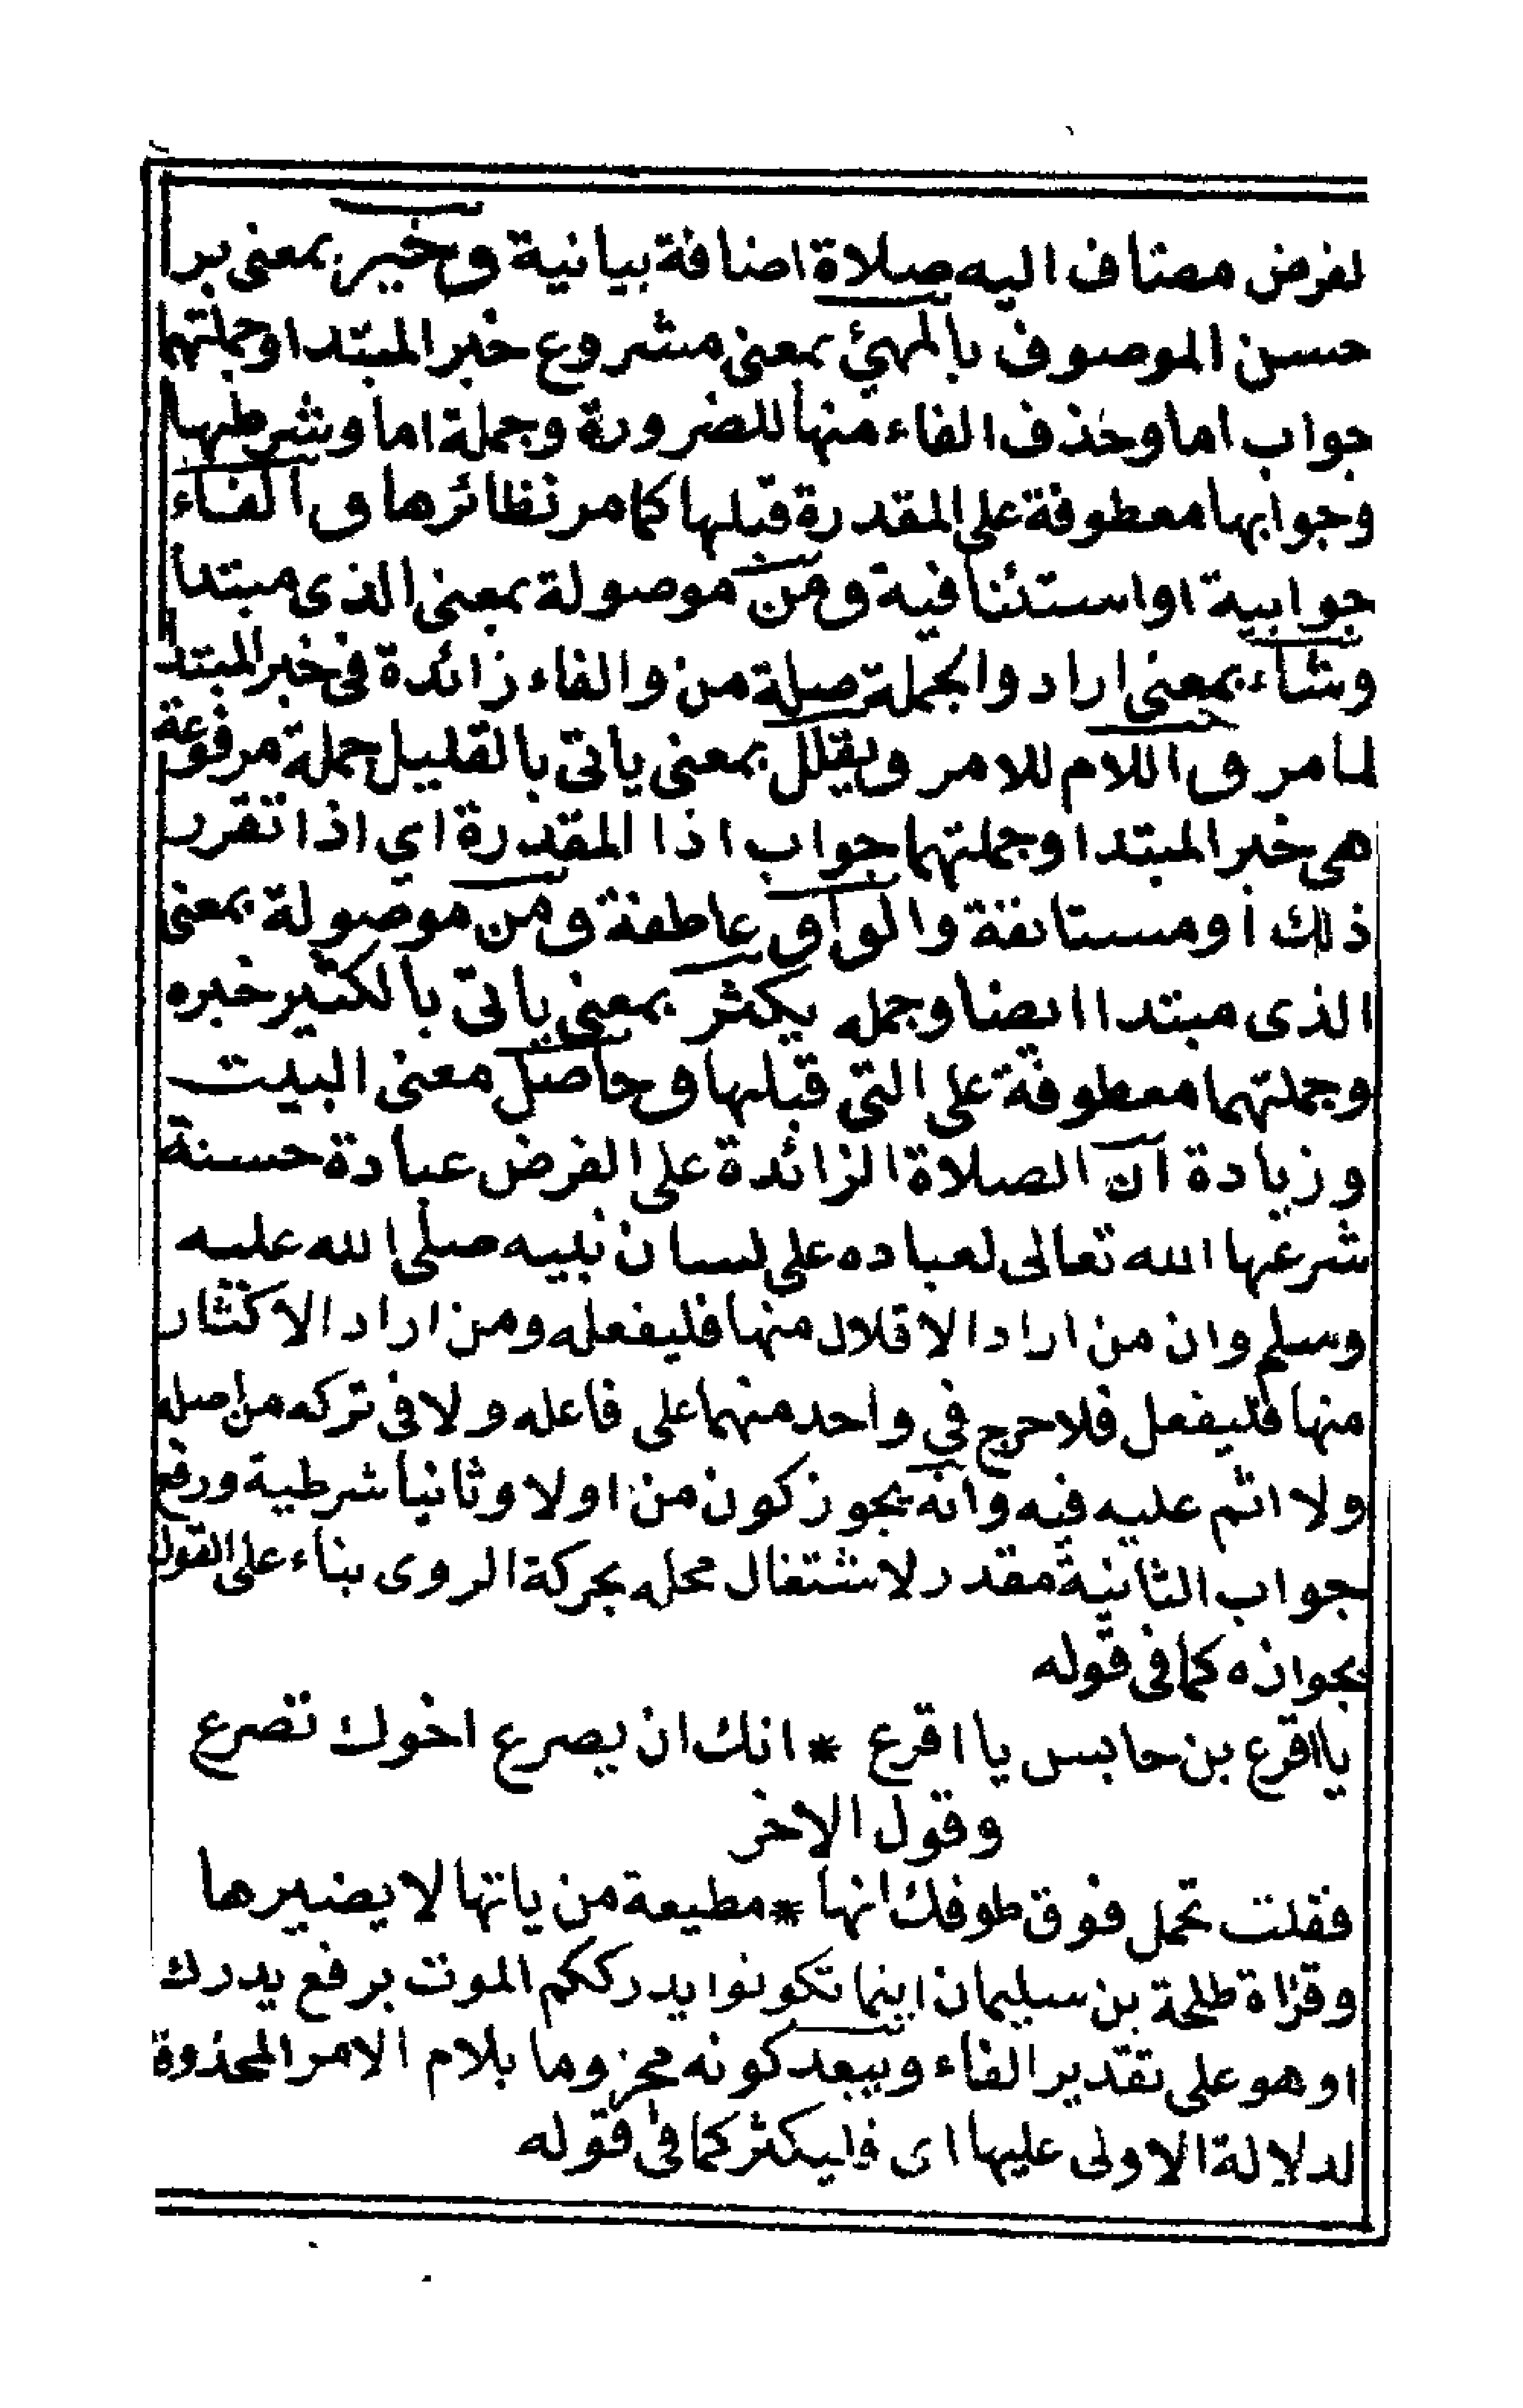 لفرض مضاف اليه صلاة اضافة بيانية وخير بمعنى برا
حسن الموصوف بالمهئ بمعنى مشروع خبر المبتدا وجملتهما
جواب اما وحذف الفاء منها للضرورة وجملة اما وشرطها
وجوابها معطوفة على المقدرة قبلها كما مر نظائرها و الفاء
جوابية او استئنافية ومن موصولة بمعنى الذى مبتدا
وشاء بمعنى اراد والجملة صلة من والفاء زائدة فى خبر المبتدا
لما مر و اللام للامر ويقلل بمعنى ياتى بالقليل جملة مرفوعة
هى خبر المبتدا وجملتهما جواب اذا المقدرة اي اذا تقرر
ذلك أو مستانفة والواو عاطفة ومن موصولة بمعنى
الذى مبتدا ايضا وجمله يكثر بمعنى ياتى بالكثير خبره
وجملتهما معطوفة على التى قبلها و حاصل معنى البيت
وزيادة ان الصلاة الزائدة على الفرض عبادة حسنة
شرعها الله تعالى لعباده على لسان نبيه صلى الله عليه
وسلم وان من اراد الاقلال منها فليفعله ومن اراد الاكثار
منها فليفعل فلا حرج في واحد منهما على فاعله ولا فى تركه من اصله
ولا اثم عليه فيه وانه يجوز كون من اولا وثانيا شرطية ورفع
جواب الثانية مقدر لاشتغال محله بحركة الروى بناء على القول
بجوازه كما فى قوله
يا اقرع بن حابس يا اقرع * انك ان يصرع اخوك تصرع
وقول الاخر
فقلت تحمل فوق طوفك انها * مطيعة من ياتها لا يضيرها
وقراة طلحة بن سليمان اينما تكونوا يدرككم الموت برفع يدرك
او هو على تقدير الفاء ويبعد كونه مجزوما بلام الامر المحذوفة
لدلالة الاولى عليها اى فليكثر كما فى قوله